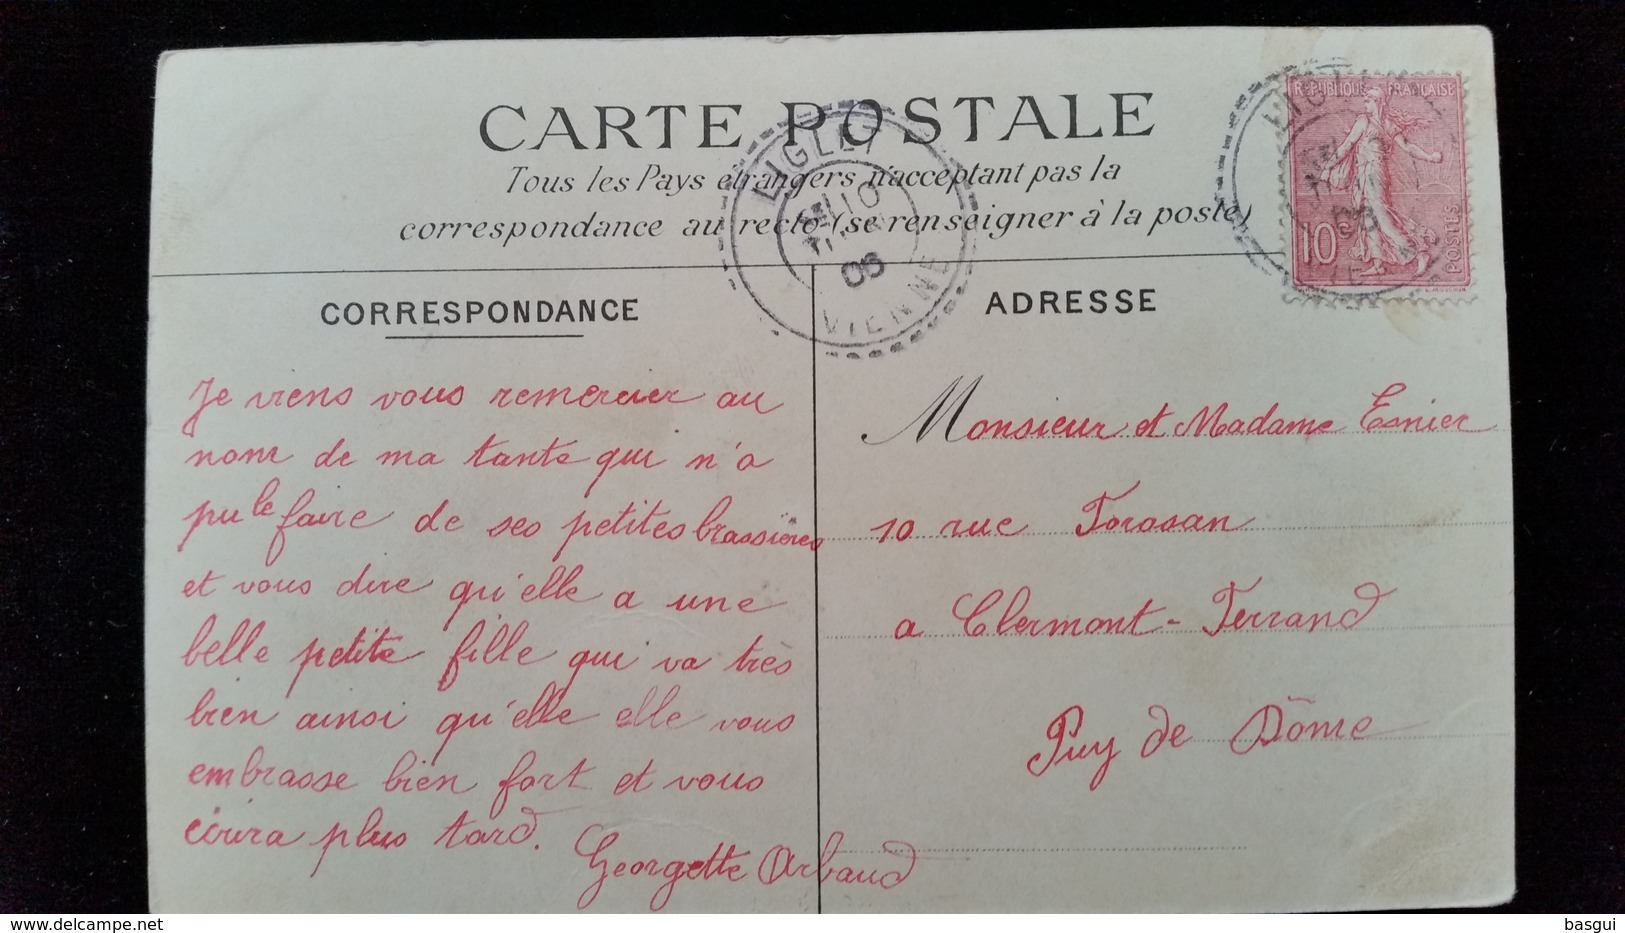 CARTE POSTALE
Tous les Pays étrangers n'acceptent pas la
correspondance au recto (se renseigner à la poste)
LIGLET
10
06
VIENNE
REPUBLIQUE FRANÇAISE
10
POSTES
CORRESPONDANCE
Je viens vous remercier au
nom de ma tante qui n'a
pu le faire de ses petites brassières
et vous dire qu'elle a une
belle petite fille qui va très
bien ainsi qu'elle elle vous
embrasse bien fort et vous
écrira plus tard.
Georgette Arbaud
ADRESSE
Monsieur et Madame Esnier
10 rue Torasan
a Clermont-Ferrand
Puy de Dôme
delcampe.net
basgui